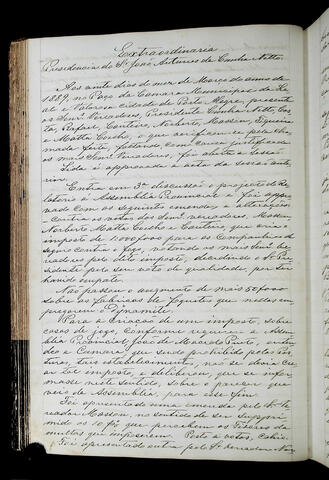 Extraordinaria
Presidencia do Sr. José Antunes da Cunha Netto
Aos onze dias do mez de Março do anno de
1889, no Paço da Camara Municipal da Le
al e Valorosa Cidade de Porto Alegre, present
es os Senrs. Vereadores, Presidente Cunha Netto, Cos
ta, Rafael, Couteiro, Norberto, Masson, Siqueira
e Matta Coelho, o que verificou-se pela cha
mada feita, faltando com causa justificada
os mais Senrs. Vereadores, foi aberta a Sessão.
Lida é approvada a acta da Sessão ante
rior.
Entra em 3ª discussão o projecto de Re
latorio a Assembléa Provincial e foi appro
vado com as seguintes emendas e alterações
contra os votos dos Senrs. vereadores, Masson,
Norberto, Matta Coelho e Couteiro, que cria o
imposto de 1:000$000 para as Companhias de
Seguro Contra o fogo, votando os mais Senrs. Ve
readores pelo dito imposto, decidindo o Sr. Pre
sidente pelo seu voto de qualidade, por ter
havido empate.
Não passou o augmento de mais 50$000
sobre as fabricas de foguetes que nellas em
pregarem o Dynamite.
Para a Criação de um imposto, sobre
casas de jogo, Conforme requereu á Assem
bléa Provincial João de Macedo Pinto, enten
deu a Camara, que sendo prohibido pelas
turas, taes estabelecimentos, não se devia Cre
ar tal imposto, e deliberou que se infor
masse neste sentido, sobre o parecer que
veio da Assembléa, para esse fim.
Foi apresentada uma emenda pelo Sr. Ve
reador Masson, no sentido de ser suppri
mido os 10 % que percebem os Fiscaes das
multas que impozerem. Posto a votos, cahio.
Foi apresentado outra pelo Sr. Vereador Nor